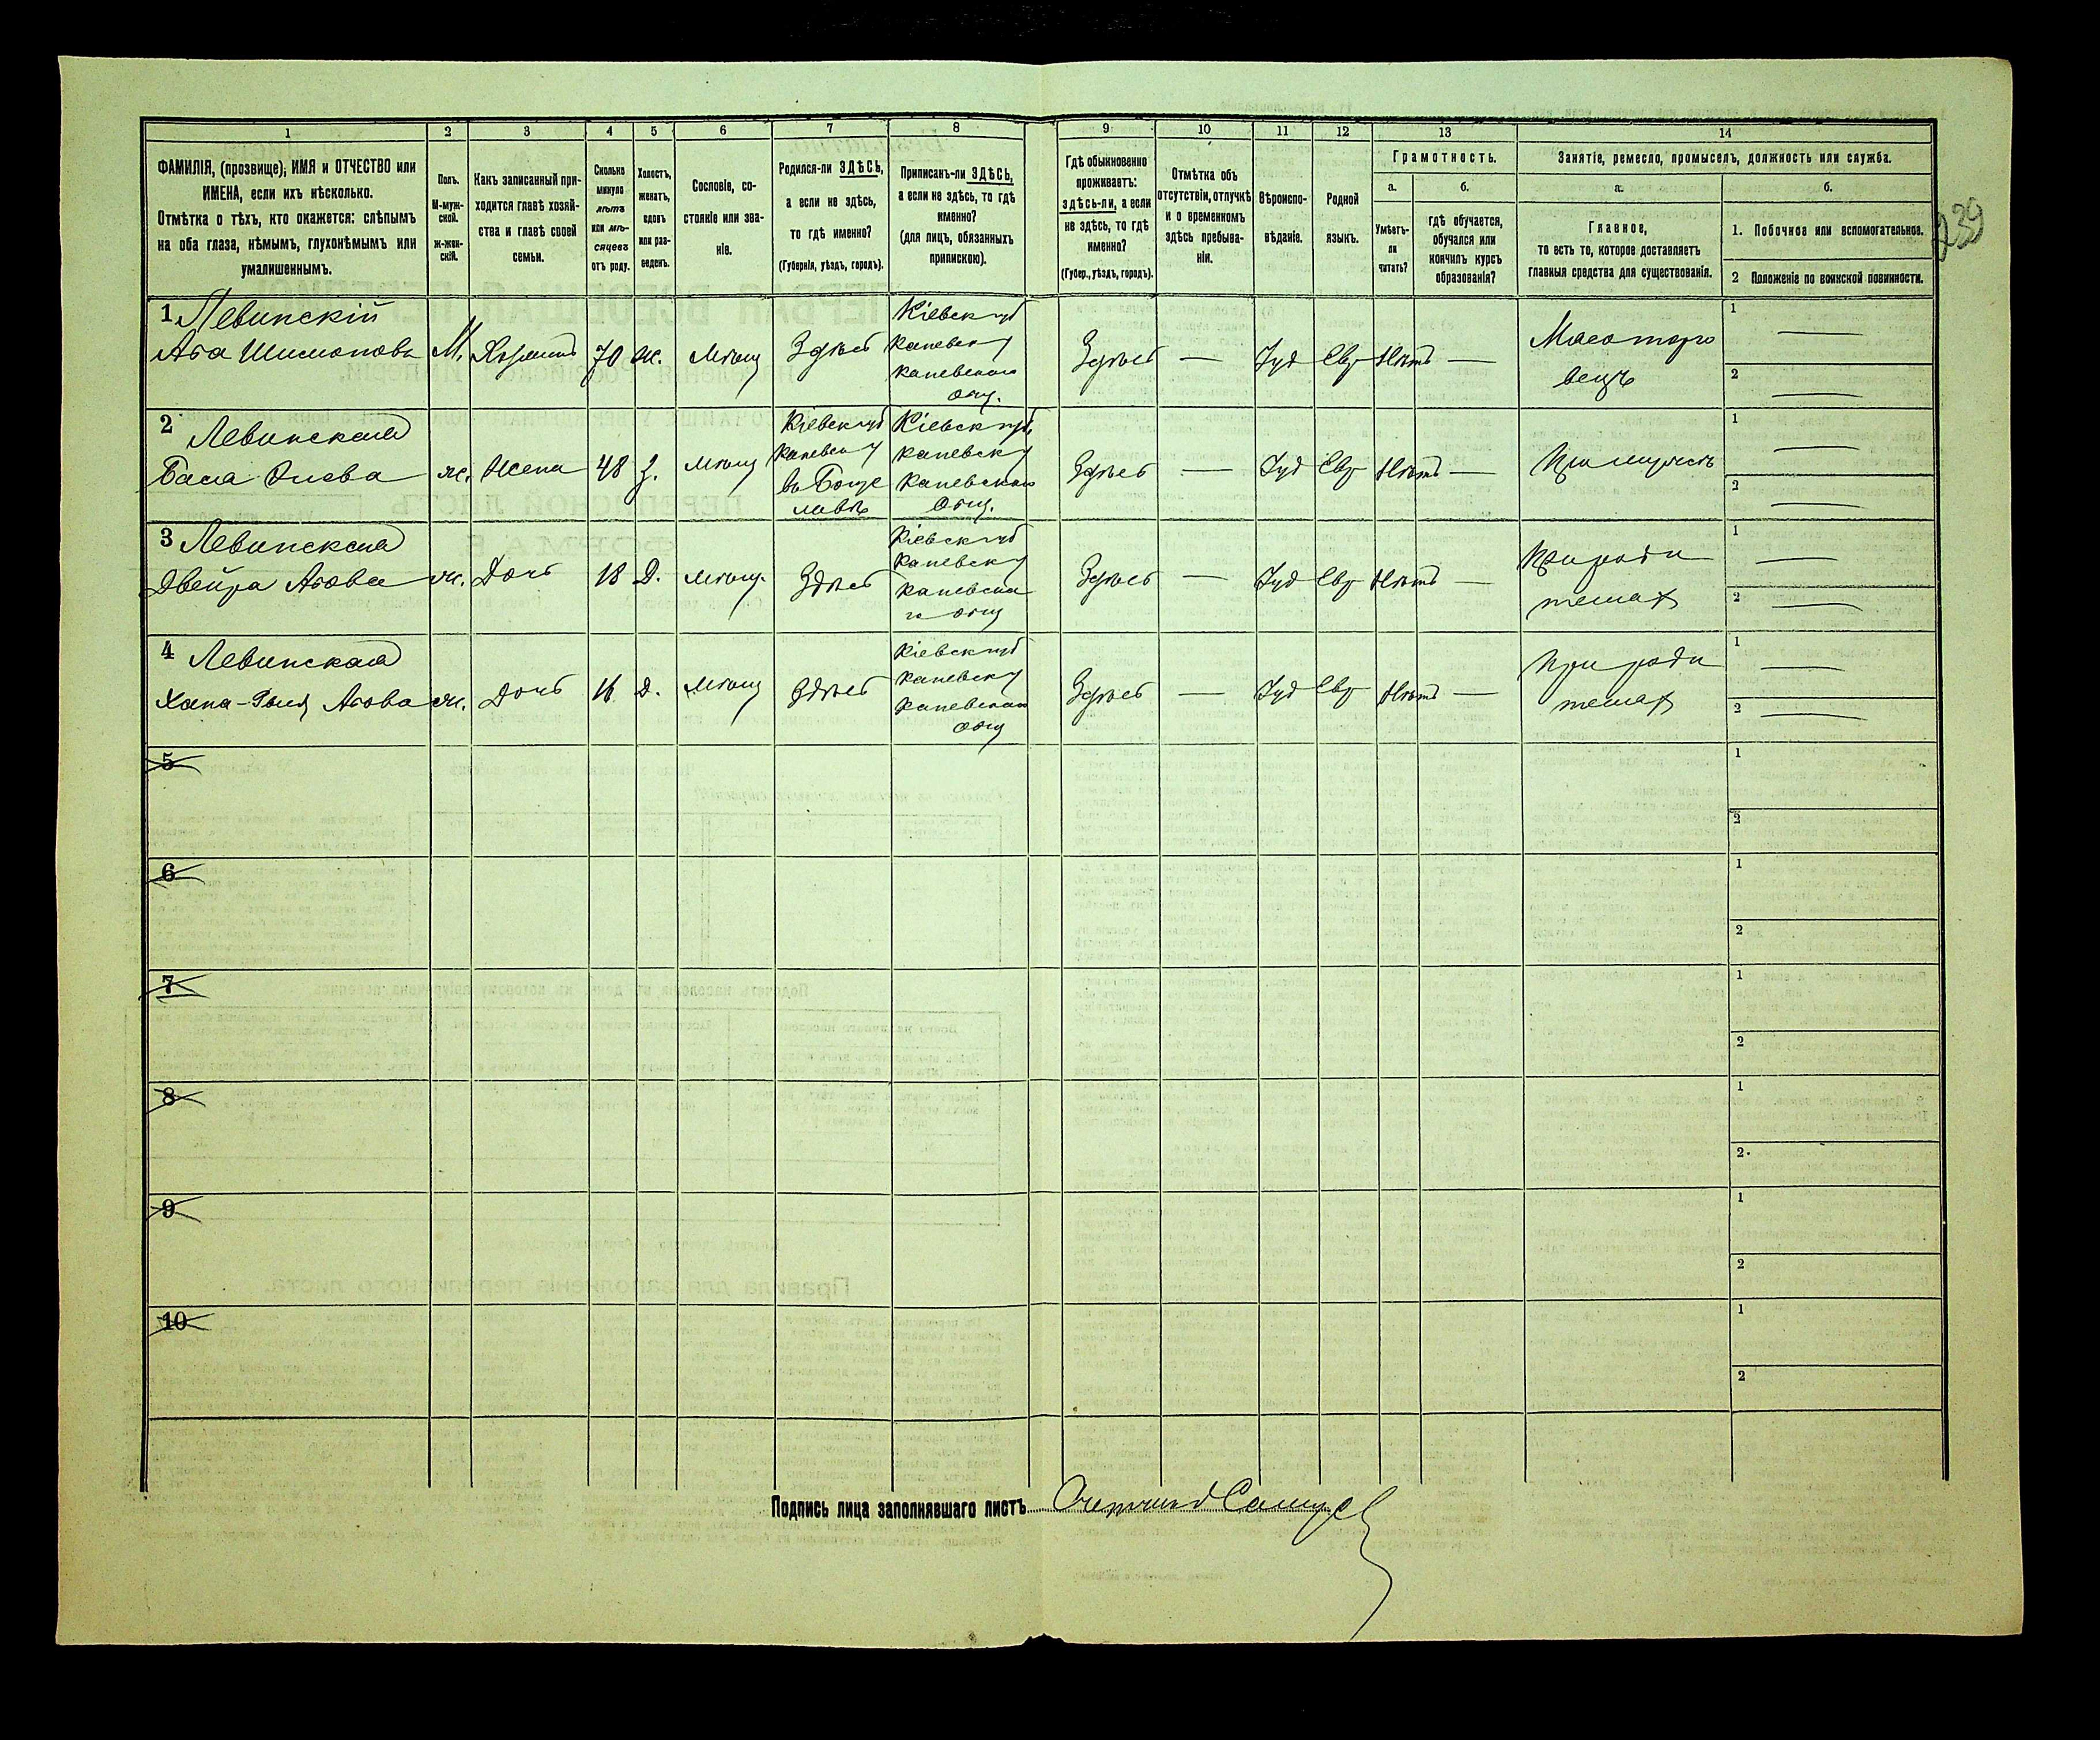 1 2 3 4 5 6 7 8 9 10 11 12 13 14
ФАМИЛІЯ, (прозвище), ИМЯ и ОТЧЕСТВО или
ИМЕНА, если ихъ нѣсколько.
Отмѣтка о тѣхъ, кто окажется: слѣпымъ
на оба глаза, нѣмымъ, глухонѣмымъ или
умалишеннымъ.
Полъ.
М-муж-
ской.
ж-жен-
скій.
Какъ записанный при-
ходится главѣ хозяй-
ства и главѣ своей
семьи.
Сколько
минуло
лѣтъ
или мѣ-
сяцевъ
отъ роду.
Холостъ,
женатъ,
вдовъ
или раз-
веденъ.
Сословіе, со-
стояніе или зва-
ніе.
Родился-ли ЗДѢСЬ,
а если не здѣсь,
то гдѣ именно?
(Губернія, уѣздъ, городъ).
Приписанъ-ли ЗДѢСЬ,
а если не здѣсь, то гдѣ
именно?
(для лицъ, обязанныхъ
припискою).
Гдѣ обыкновенно
проживаетъ:
здѣсь-ли, а если
не здѣсь, то гдѣ
именно?
(Губер., уѣздъ, городъ).
Отмѣтка объ
отсутствіи, отлучкѣ
и о временномъ
здѣсь пребыва-
ніи.
Вѣроиспо-
вѣданіе.
Родной
языкъ.
Грамотность.
а.
Умѣетъ-
ли
читать?
б.
гдѣ обучается,
обучался или
кончилъ курсъ
образованія?
Занятіе, ремесло, промыселъ, должность или служба.
а.
Главное,
то есть то, которое доставляетъ
главныя средства для существованія.
б.
1. Побочное или вспомогательное.
2 Положеніе по воинской повинности.
239
1 Левинскій
М. Хозяинъ 70 ж. Мѣщ Здѣсь
Кіевск губ
каневск у
каневскаго
общ.
Здѣсь — Іуд Евр Нѣтъ —
Мясоторго
вецъ
1 —
2 —
2 Левинская
ж. Жена 48 З. Мѣщ
Кіевск губ
каневск у
въ Богу
славѣ
Кіевск губ.
каневск у
каневскаго
общ.
Здѣсь — Іуд Евр Нѣтъ —
При мужѣ
1 —
2 —
3 Левинская
Двейра ж. Дочь 18 Д. мѣщ. Здѣсь
Кіевск губ
каневск у
каневска
го общ
Здѣсь — Іуд Евр Нѣтъ —
При роди
теляхъ
1 —
2 —
4 Левинская
ж. Дочь 16 Д. мѣщ Здѣсь
Кіевск губ
каневск у
каневскаго
общ
Здѣсь — Іуд Евр Нѣтъ —
При роди
теляхъ
1 —
2 —
5
1
2
6
1
2
7
1
2
8
1
2
9
1
2
10
1
2
Подпись лица заполнявшаго листъ